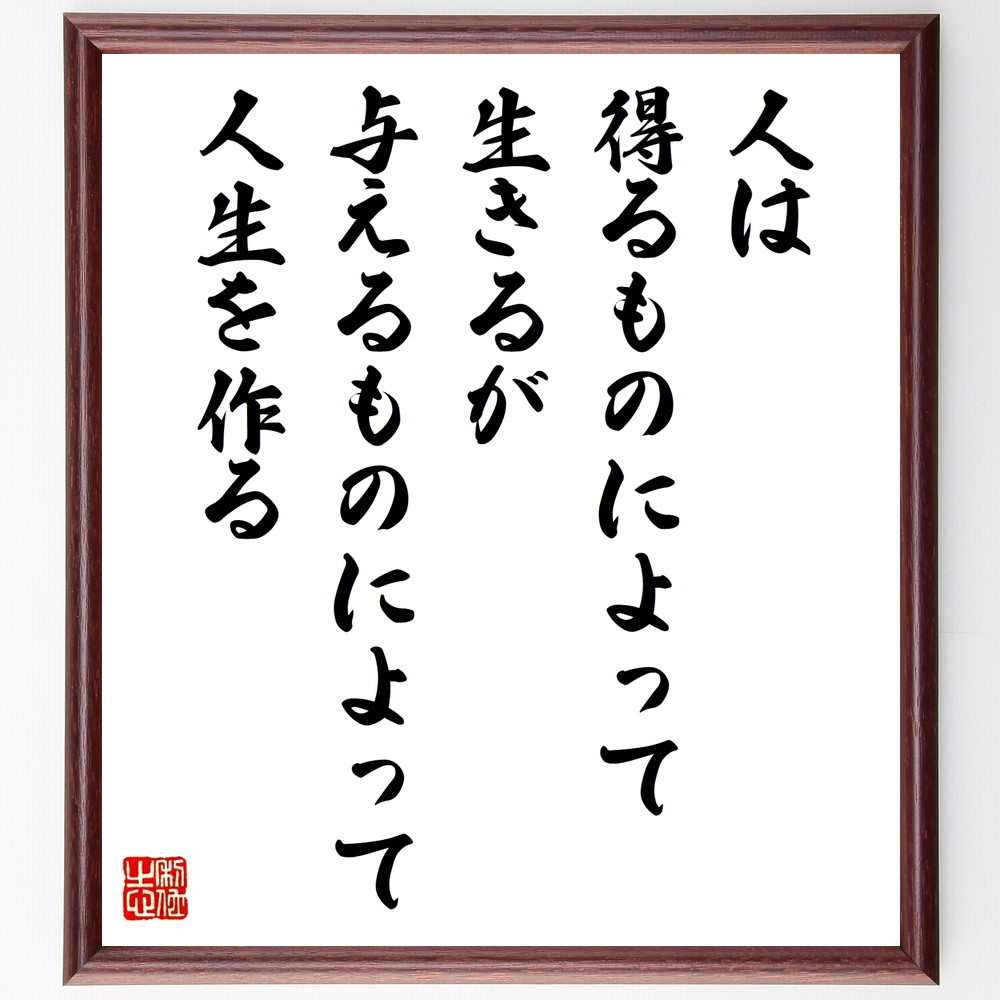 人は
得るものによって
生きるが
与えるものによって
人生を作る